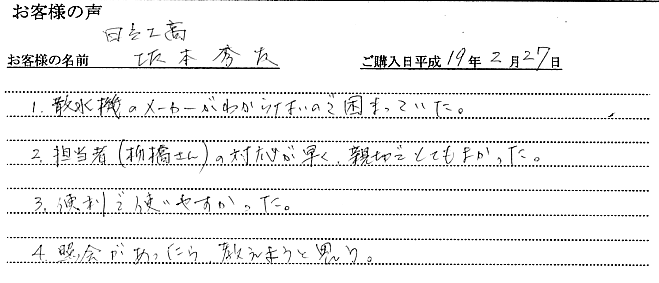 お客様の声
日立工商
お客様の名前 坂本秀友 ご購入日平成19年2月27日
1. 散水機のメーカーがわからないので困まっていた。
2. 担当者(栃橋さん)の対応が早く、親切でとてもよかった。
3. 便利で使いやすかった。
4. 照会があったら、教えようと思う。